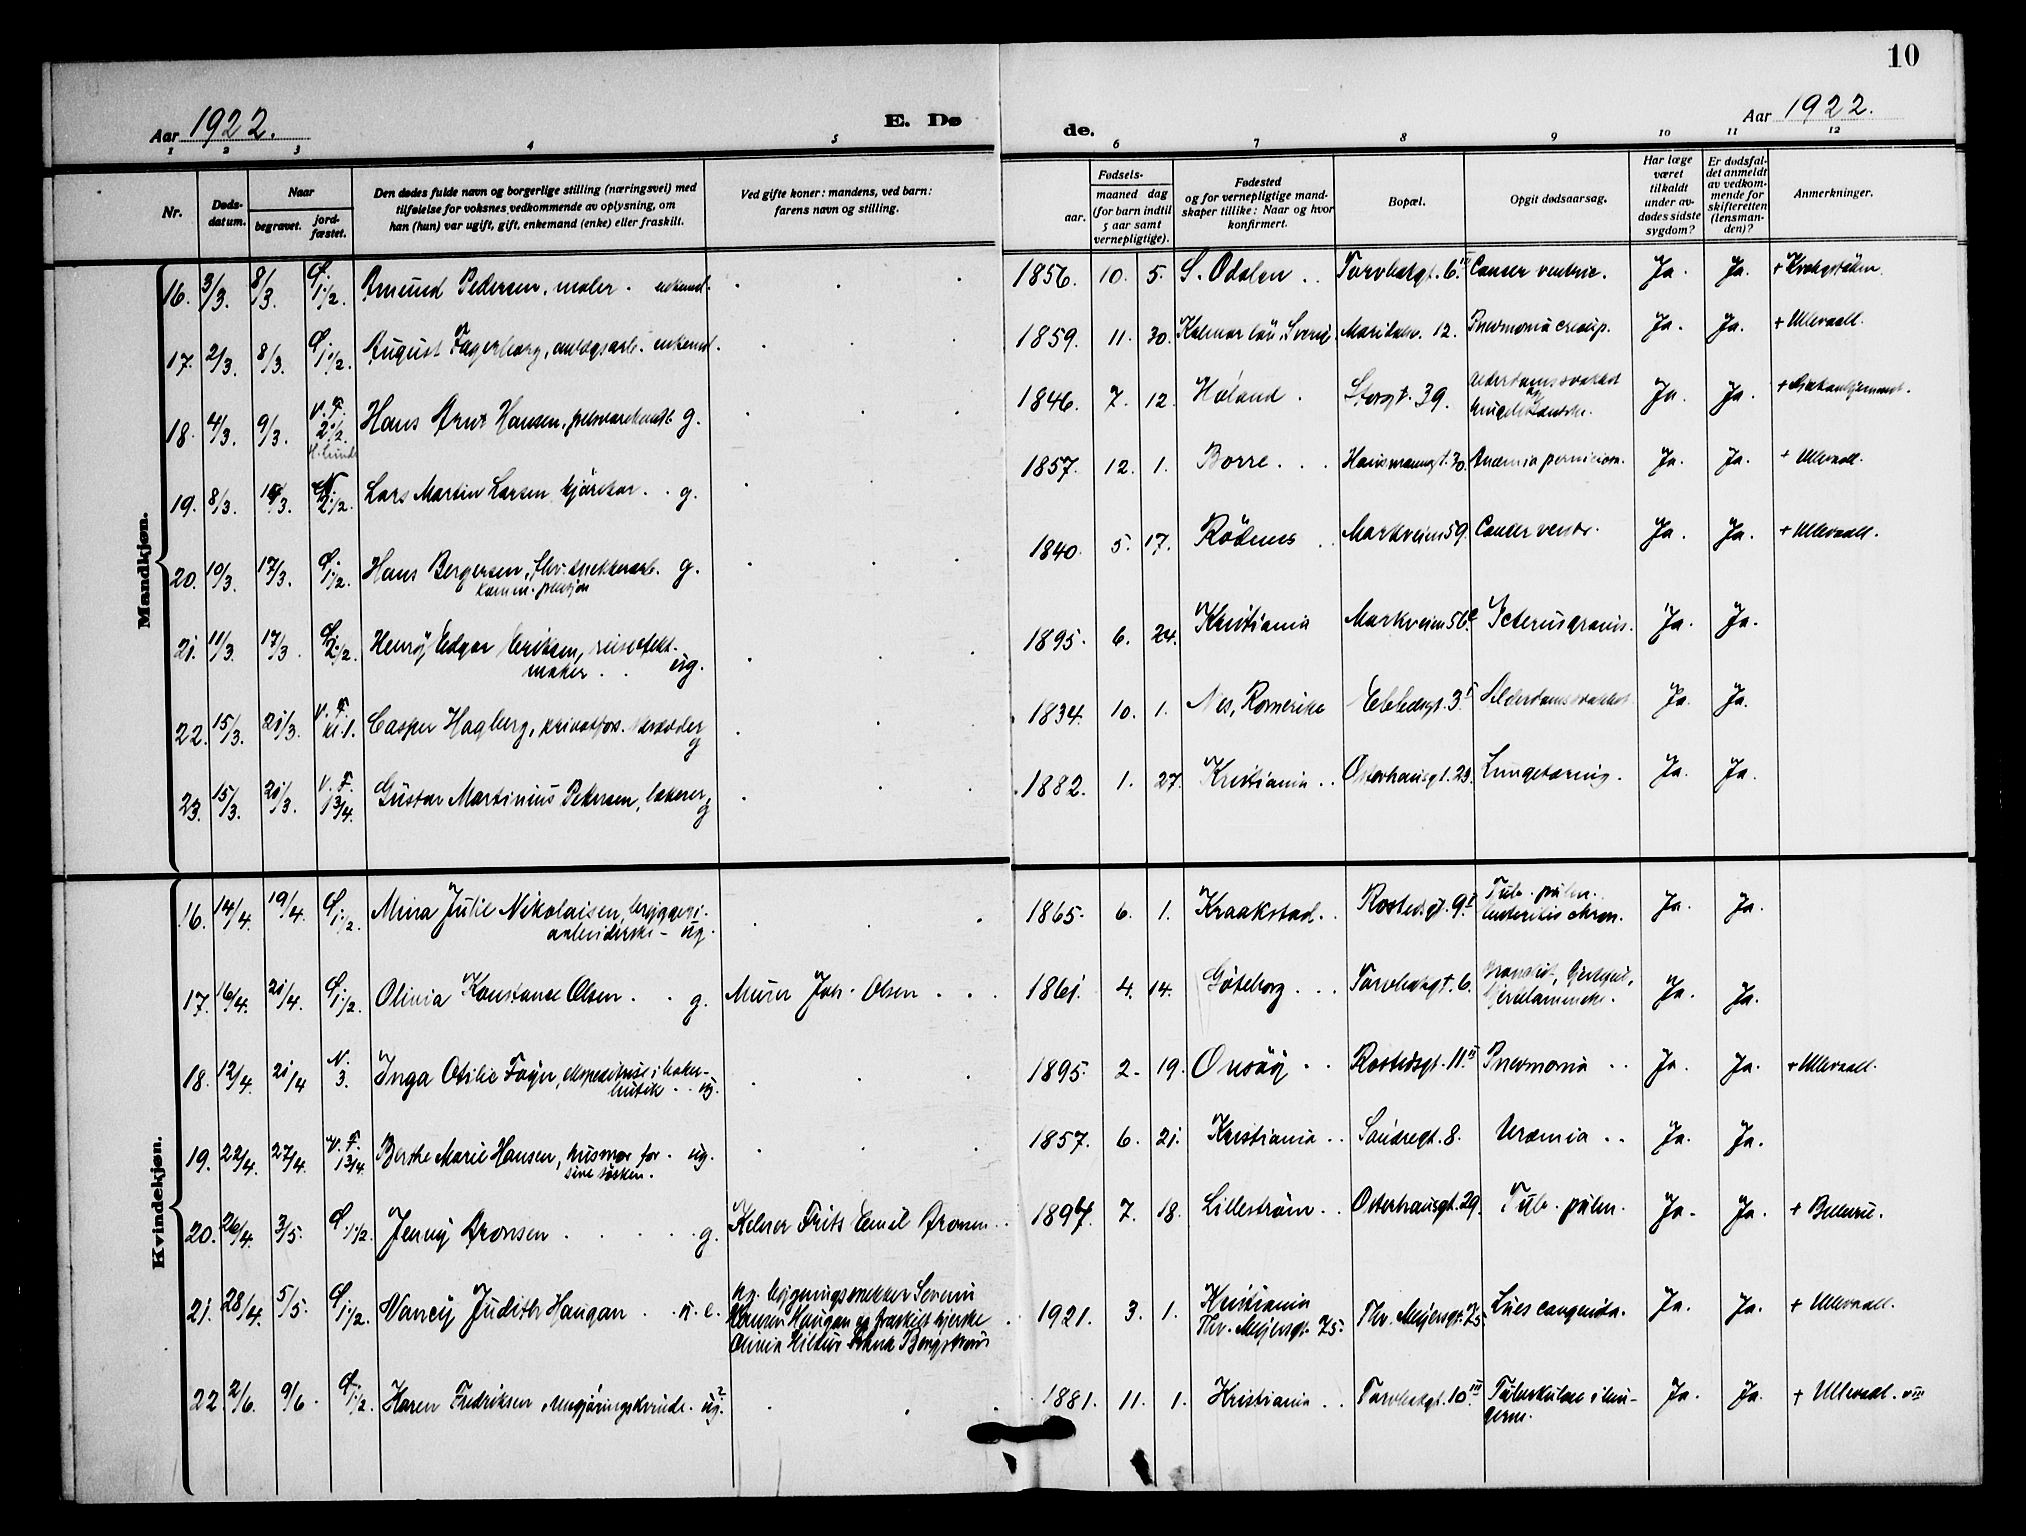 10
Aar 1922.
E. Dø
de.
Aar 1922.
1 2 3 4 5 6 7 8 9 10 11 12
Nr.
Døds-
datum.
Naar
begravet.
jord-
fæstet.
Den dødes fulde navn og borgerlige stilling (næringsvei) med
tilføielse for voksnes vedkommende av oplysning, om
han (hun) var ugift, gift, enkemand (enke) eller fraskilt.
Ved gifte koner: mandens, ved barn:
farens navn og stilling.
Fødsels-
aar.
maaned dag
(for barn indtil
5 aar samt
vernepligtige).
Fødested
og for vernepligtige mand-
skaper tillike: Naar og hvor
konfirmert.
Bopæl.
Opgit dødsaarsag.
Har læge
været
tilkaldt
under av-
dødes sidste
sygdom?
Er dødsfal-
det anmeldt
av vedkom-
mende for
skifteretten
(lensman-
den)?
Anmerkninger.
Mandkjøn.
16. 3/3. 8/3. 1 1/2. Amund Pedersen, maler. enkemd. 1856. 10. 5. S. Odalen Torvbakgt. 6 Cancer ventric. Ja. Ja.
17. 2/3. 8/3. August Fagerberg, anlægsarb. enkemd. 1859. 11. 30. Kalmar län, Sverige Maridalsv. 12. Pneumonia croup. Ja. Ja. + Ullevaall.
18. 4/3. 9/3. V. F. Hans Arnt Hansen, g. 1846. 7. 12. Høland. Storgt. 39. Alderdomssvakhet Ja. Ja.
19. 8/3. Lars Martin Larsen kjørekar. g. 1857. 12. 1. Borre. Hausmannsgt. 30. Anæmia perniciosa. Ja. Ja. + Ullevaall.
20. 10/3. 17/3. Hans Bergersen, g. 1840. 5. 17. Rödenes Markveien 59. Cancer ventr. Ja. Ja. + Ullevaall.
21. 11/3. 17/3. Henry Edgar Eriksen, reiseefekt-
maker. ug. 1895. 6. 24. Kristiania Markveien 56 Icterus gravis. Ja. Ja.
22. 15/3. 21/3. V. F. kl. 1. Casper Hagberg, g 1834. 10. 1. Nes, Romerike 3 Alderdomssvakhet Ja. Ja.
23. 15/3. 21/3. V. F. 1 3/4. Gustav Martinius Pedersen, lakerer g 1882. 1. 27. Kristiania Osterhausgt. 29. Lungetæring. Ja. Ja.
Kvindekjøn.
16. 14/4. 19/4. Mina Julie Nikolaisen, bryggeri-
arbeiderske - ug. 1865. 6. 1. Kraakstad. Rostedsgt. 9 Tub. pulm.
enteritis chron. Ja. Ja.
17. 16/4. 21/4. Olivia Konstance Olsen. g. Murer Joh. Olsen 1861. 4. 14. Göteborg Torvbakgt. 6. Hjertelammelse. Ja. Ja.
18. 12/4. 21/4 N. 3. Inga Otilie Foyn, ekspeditrice i baker-
butik ug. 1895. 2. 19. Onsøy Rostedsgt. 11 Pneumonia Ja. Ja. + Ullevaall.
19. 22/4. 27/4. V. F. 1 3/4. Berthe Marie Hansen, husmor for ug.
sine søsken. 1857. 6. 21. Kristiania Søndregt. 8. Uræmia Ja. Ja.
20. 26/4. 3/5. Jenny Aronsen g. Kelner Frits Emil Aronsen 1894. 7. 18. Lillestrøm Osterhausgt. 29. Tub. pulm. Ja. Ja.
21. 28/4. 5/5. Nancy Judith Haugan u. e. bygningssnekker Severin
Hansen Haugan og fraskilt hjerske
Olivia Bergstrøm 1921. 3. 1. Kristiania
Thv. Meyersgt. 75. Thv. Meyersgt. 75 Lues congenita. Ja. Ja. + Ullevaall.
22 2/6. 9/6. Karen Fredriksen, rengjøringskvinde. ug.? 1881. 11. 1. Kristiania Torvbakgt. 10 III Tuberkulose i lun-
gerne. Ja. Ja. + Ullevaal. VIII